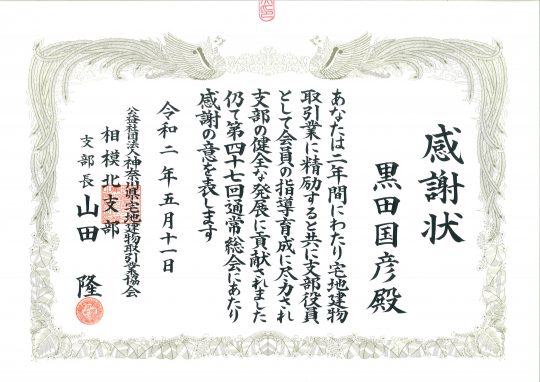 感謝状
黒田国彦殿
あなたは二年間にわたり宅地建物
取引業に精励すると共に支部役員
として会員の指導育成に尽力され
支部の健全な発展に貢献されました
仍て第四十七回通常総会にあたり
感謝の意を表します
令和二年五月十一日
公益社団法人神奈川県宅地建物取引業協会
相模北支部
支部長 山田 隆